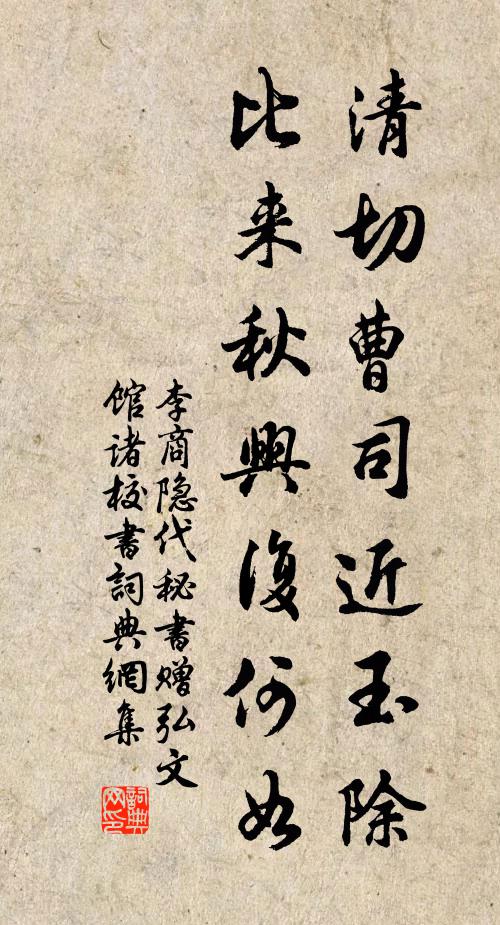 清切曹司近玉除
比来秋興復何如
李商隐代秘書赠弘文
馆诸校書詞典網集
詞典网印